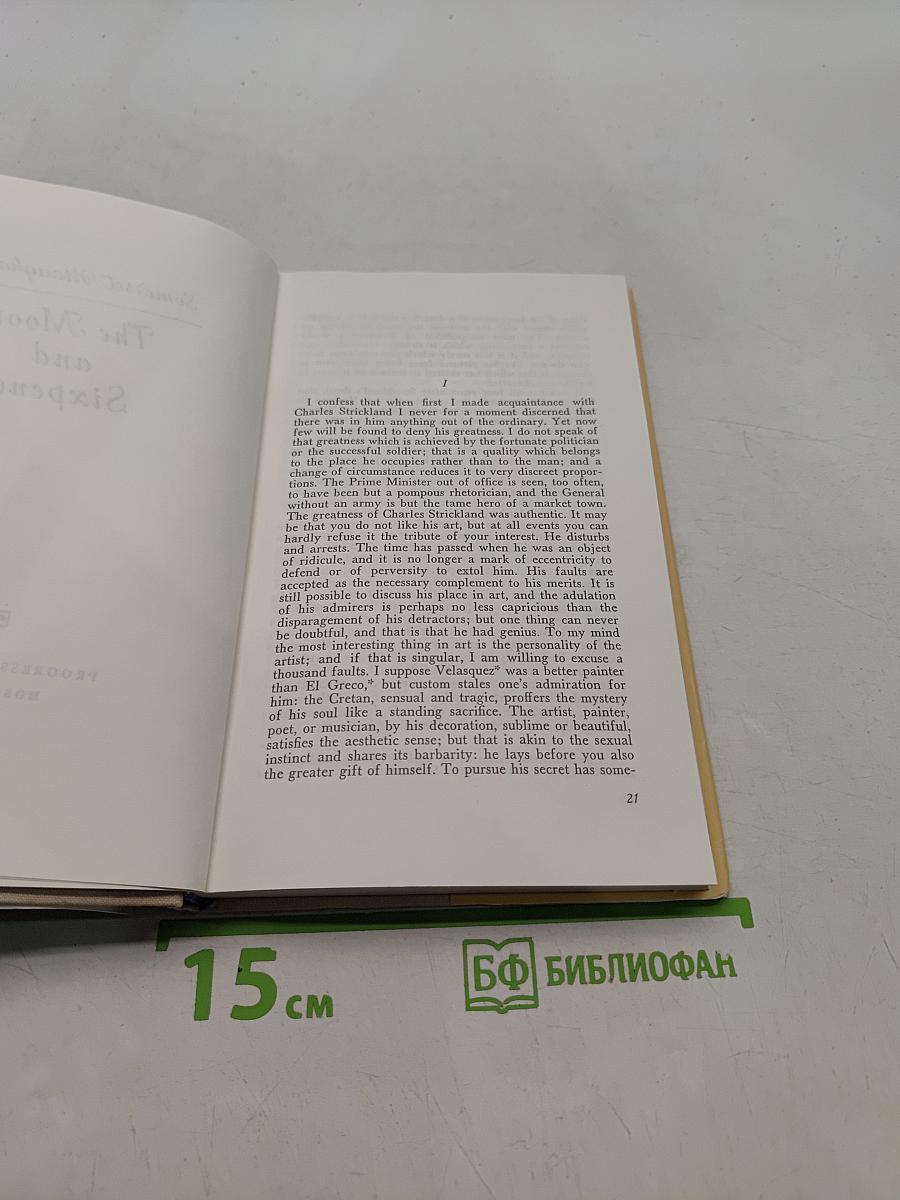 Somerset
The Moon
and
Sixpence
PROGRESS
I
I confess that when first I made acquaintance with
Charles Strickland I never for a moment discerned that
there was in him anything out of the ordinary. Yet now
few will be found to deny his greatness. I do not speak of
that greatness which is achieved by the fortunate politician
or the successful soldier; that is a quality which belongs
to the place he occupies rather than to the man; and a
change of circumstance reduces it to very discreet propor-
tions. The Prime Minister out of office is seen, too often,
to have been but a pompous rhetorician, and the General
without an army is but the tame hero of a market town.
The greatness of Charles Strickland was authentic. It may
be that you do not like his art, but at all events you can
hardly refuse it the tribute of your interest. He disturbs
and arrests. The time has passed when he was an object
of ridicule, and it is no longer a mark of eccentricity to
defend or of perversity to extol him. His faults are
accepted as the necessary complement to his merits. It is
still possible to discuss his place in art, and the adulation
of his admirers is perhaps no less capricious than the
disparagement of his detractors; but one thing can never
be doubtful, and that is that he had genius. To my mind
the most interesting thing in art is the personality of the
artist; and if that is singular, I am willing to excuse a
thousand faults. I suppose Velasquez* was a better painter
than El Greco,* but custom stales one's admiration for
him: the Cretan, sensual and tragic, proffers the mystery
of his soul like a standing sacrifice. The artist, painter,
poet, or musician, by his decoration, sublime or beautiful,
satisfies the aesthetic sense; but that is akin to the sexual
instinct and shares its barbarity: he lays before you also
the greater gift of himself. To pursue his secret has some-
21
15 см
БФ БИБЛИОФАН